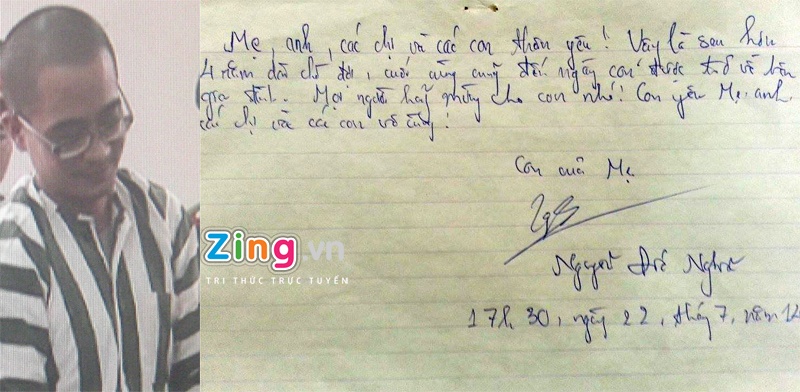 Mẹ, anh, các chị và các con thân yêu! Vậy là sau hơn
4 năm dài chờ đợi, cuối cùng cũng đến ngày con được trở về bên
gia đình. Mọi người hãy mừng cho con nhé! Con yêu Mẹ, anh,
các chị và các con vô cùng!
Con của Mẹ
Nguyễn Đức Nghĩa
17h 30, ngày 22, tháng 7, năm 12
Zing.vn
TRI THỨC TRỰC TUYẾN